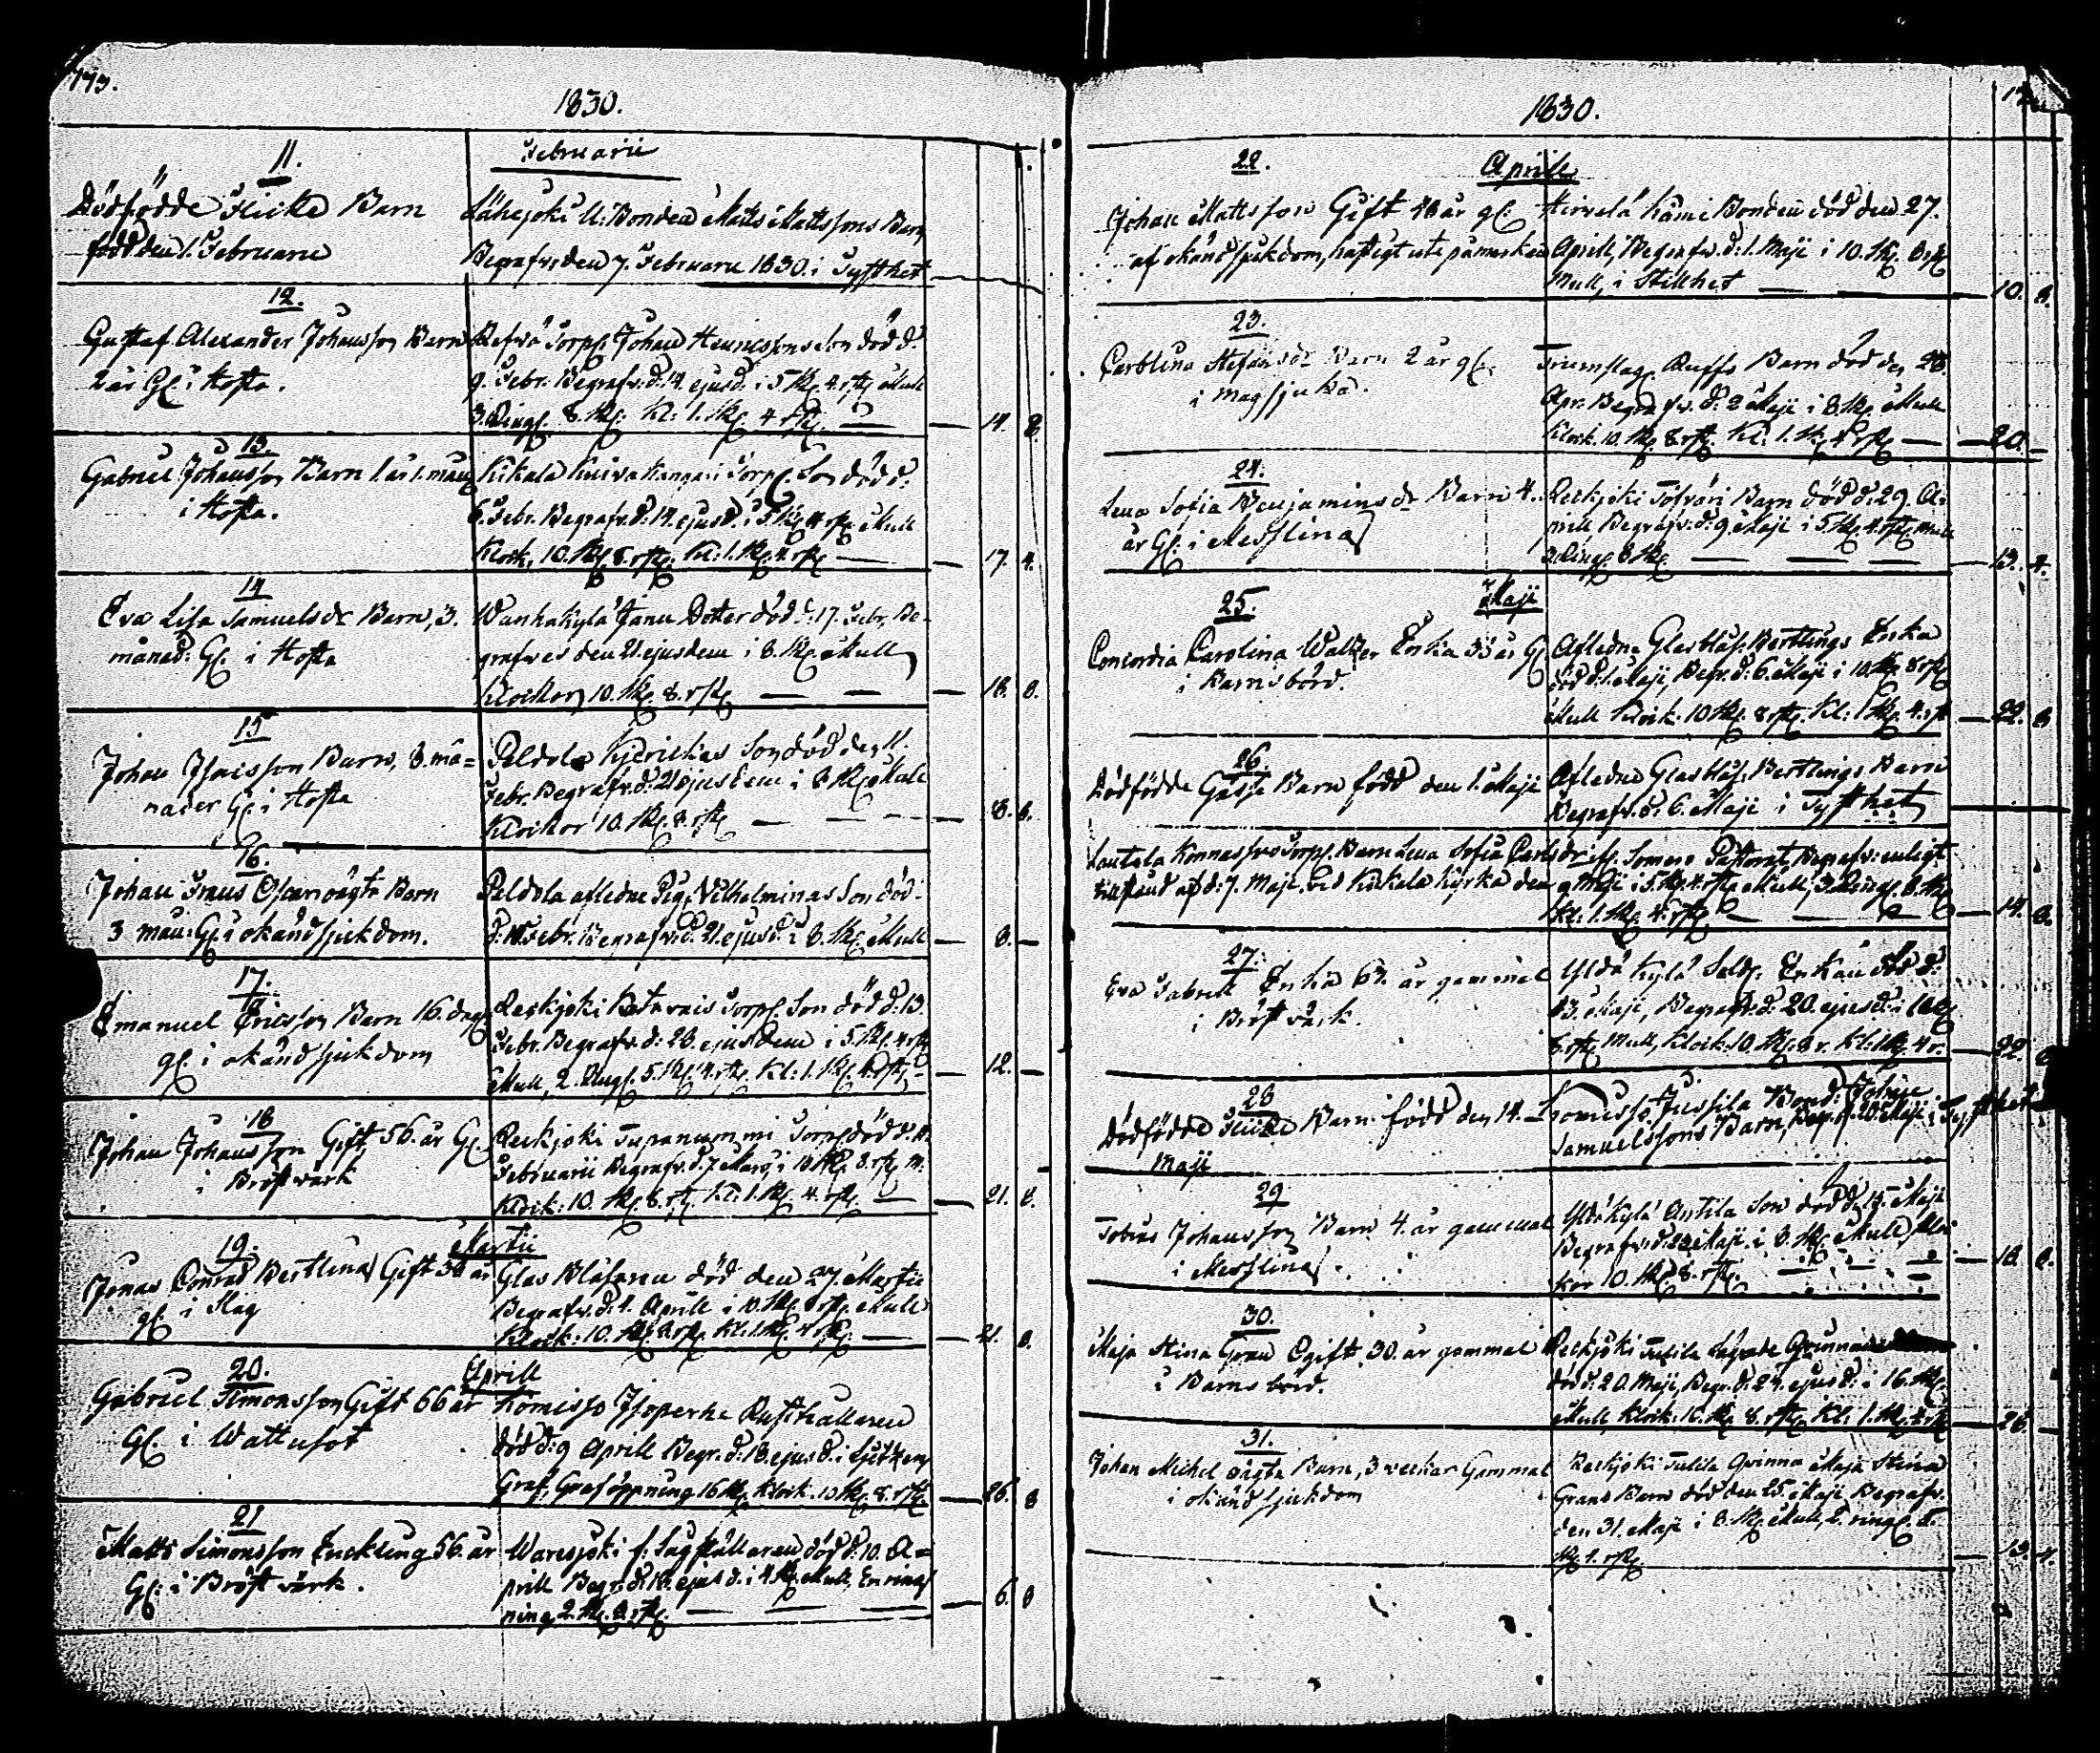 1830.
Februarii
11.
Dödfödde Flicke Barn
född den 1. Februarii
Lähejoki U: Bonden Matts Mattssons Barn
Begrafvs den 7. Februarii 1830. i Tysthet
12.
Gustaf Alexander Johansson Barn
2 år Gl. i Hosta.
Johan Henricssons Son död d.
9. Febr. Begrafv. d. 14. ejusd. i 5 sk. 4. rst. Mull
3. Ringn. 8. sk. Kl: 1. sk. 4 rst. — 14. 8.
13.
Gabriel Johansson Barn 1. år 1. mån
i Hosta.
Kikala Kuivakangas Torp. Son död d.
6. Febr. Begrafv. d. 14. ejusd. i 5 sk. 4 rst. Mull
Klock. 10. sk. 8. rst. Kl: 1. sk. 4 rst — 17. 4.
14
Eva Lisa Samuelsdr Barn, 3.
månad: Gl. i Hosta
Wanhakylä Janu Doter död d: 17. Febr. Be-
grafves den 21. ejusdem i 8. sk. Mull
Klockor 10. sk. 8. rst — — — 18. 8.
15
Johan Isacsson Barn, 8. må=
nader Gl. i Hosta
Peldola Son död den 11.
Febr. Begrafv. d. 21 ejusdem i 8 sk Mull
Klockor 10. sk. 8. rst — — — 18. 8.
16.
Johan Frans Oscar oägta Barn
3 mån: Gl. i okänd sjukdom.
Peldola afledne Pig. Vilhelminas Son död
Febr. Begrafv. d. 21. ejusd. i 8. sk. Mull — 8. —
17.
Emanuel Ericsson Barn 16. dag.
gl. i okänd sjukdom
Reckjoki Torp. Son död d. 13.
Febr. Begrafv. d: 28. ejusdem i 5. sk. 4 rst
Mull, 2. Ringn. 5. sk. 4. rst. Kl: 1. sk. 4. rst. — 12. —
18
Johan Johansson Gift, 56. år Gl.
i Bröstvärk
Reckjoki Tupanummi Torp. död d.
Februarii Begrafv. d. 7 Mars, i 10 sk. 8. rst. M.
Klock: 10. sk. 8. rst. Kl: 1. sk. 4. rst. — 21. 8.
Martii
19.
Jonas Conrad Bertling Gift 36 år
gl. i Slag
Glas Blåsaren död den 27. Martii
Begrafv. d. 4. Aprill i 10. sk. 8 rst. Mull
Klock: 10. sk. 8. rst. Kl: 1. sk. 4 rst. — 21. 8.
Aprill
20.
Gabriel Simonsson Gift 66 år
Gl. i Wattusot
Komisso Isoperhe Rusthållaren
död d: 9 Aprill Begr. d. 18. ejusd. i
Graf, Graföppning 16 sk. Klock. 10 sk. 8. rst. — 26. 8
21
Matts Simonsson Enckling 56. år
Gl: i Bröst värk.
Waresjoki f. Laghållaren död d: 10. A=
prill Begr. d. 18. ejusd. i 4 sk. Mull, En ring
ning 2. sk. 8. rst. — — — 6. 8
1830.
Aprill
22.
Johan Mattsson Gift 48 år gl:
af okänd sjukdom, hastigt ute på marken
Hirvelä Kämi Bonden död den 27.
Aprill, Begrafv. d: 1. Maji i 10. sk. 8 rst
Mull, i Stillhet — 10. 8.
23.
Carolina Stefansdr Barn 2 år gl.
i magsjuka.
Trumslag. Ruffs Barn död den 28.
Apr. Begrafv. d: 2 Maji i 8. sk. Mull
Klock. 10. sk. 8. rst. Kl: 1. sk. 4 rst — 20. —
24.
Lena Sofia Benjaminsdr Barn 4.
år Gl: i Messling
Reckjoki Barn död d: 29. A-
prill Begrafv. d: 9. Maji i 5. sk. 4. rst. Mull
3. Ringn. 8 sk. — — — 13. 4.
Maji
25.
Concordia Carolina Walter Enka 33 år Gl
i Barnsbörd.
Afledne Glasblås. Bertlings Enka
död d: 1. Maji, Begr. d: 6. Maji i 10. sk. 8 rst
Mull Klock. 10 sk. 8 rst. Kl: 1 sk. 4. rst — 22. 8
26.
Dödfödde Gosse Barn född den 1. Maji
Afledne Glasblås. Bertlings Barn
Begrafv. d: 6. Maji i Tysthet
Lautela Torp. Barn Lena Sofia Carlsdr ifr. Somero Pastorat, Begrafv. enligt
tillstånd af d: 7. Maji, vid Kiikala Kyrka den 9 Maji i 5. sk. 4. rst. Mull, 3. Ring. 8. sk
Kl: 1. sk. 4. rst — — — 14. 8.
27.
Eva Gabriels Enka 67. år gammal
i Bröst värk.
Yldä Kylä Sold. Enkan död d:
13. Maji, Begrafv. d: 20. ejusd: i 10 sk
8. rst. Mull, Klock. 10. sk. 8 r. Kl: 1 sk. 4 r. — 22. 8
28
Dödfödde Flicke Barn född den 14.
Maji
Komisso Jussila Bond. Johan
Samuelssons Barn, Begr. d. 20 Maji i Tysthet
29
Tobias Johansson Barn 4. år gammal
i Messling.
Yldä Kylä Antila Son död d. 13. Maji
Begrafv. d. 22 Maji. i 8. sk. Mull, Klo
kor 10. sk. 8. rst. — — — 18. 8.
30.
Maja Stina Gran Ogift, 30. år gammal
i Barnsbörd.
Reckjoki Tulila Qvinnan
död d: 20. Maji, Begr. d. 24. ejusd: i 16. sk.
Mull, Klock. 16. sk. 8. rst. Kl: 1. sk. 4. rst
31.
Johan Michel oägta Barn, 3 veckor Gammal
i okänd sjukdom
Reckjoki Tulila Qvinna Maja Stina
Grans Barn död den 25. Maji, Begrafv.
den 31. Maji i 8. sk. Mull, 2. ringn. 5.
sk. 4. rst. — 13. 4.